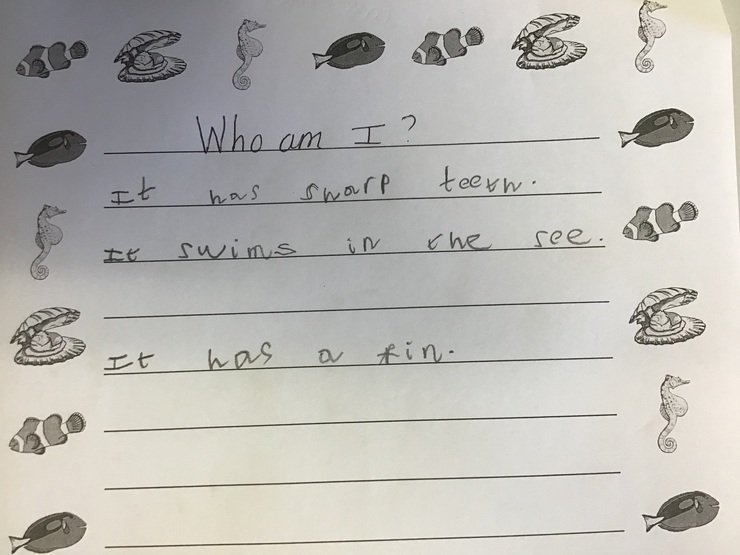 Who am I?
It has sharp teeth.
It swims in the see.
It has a fin.